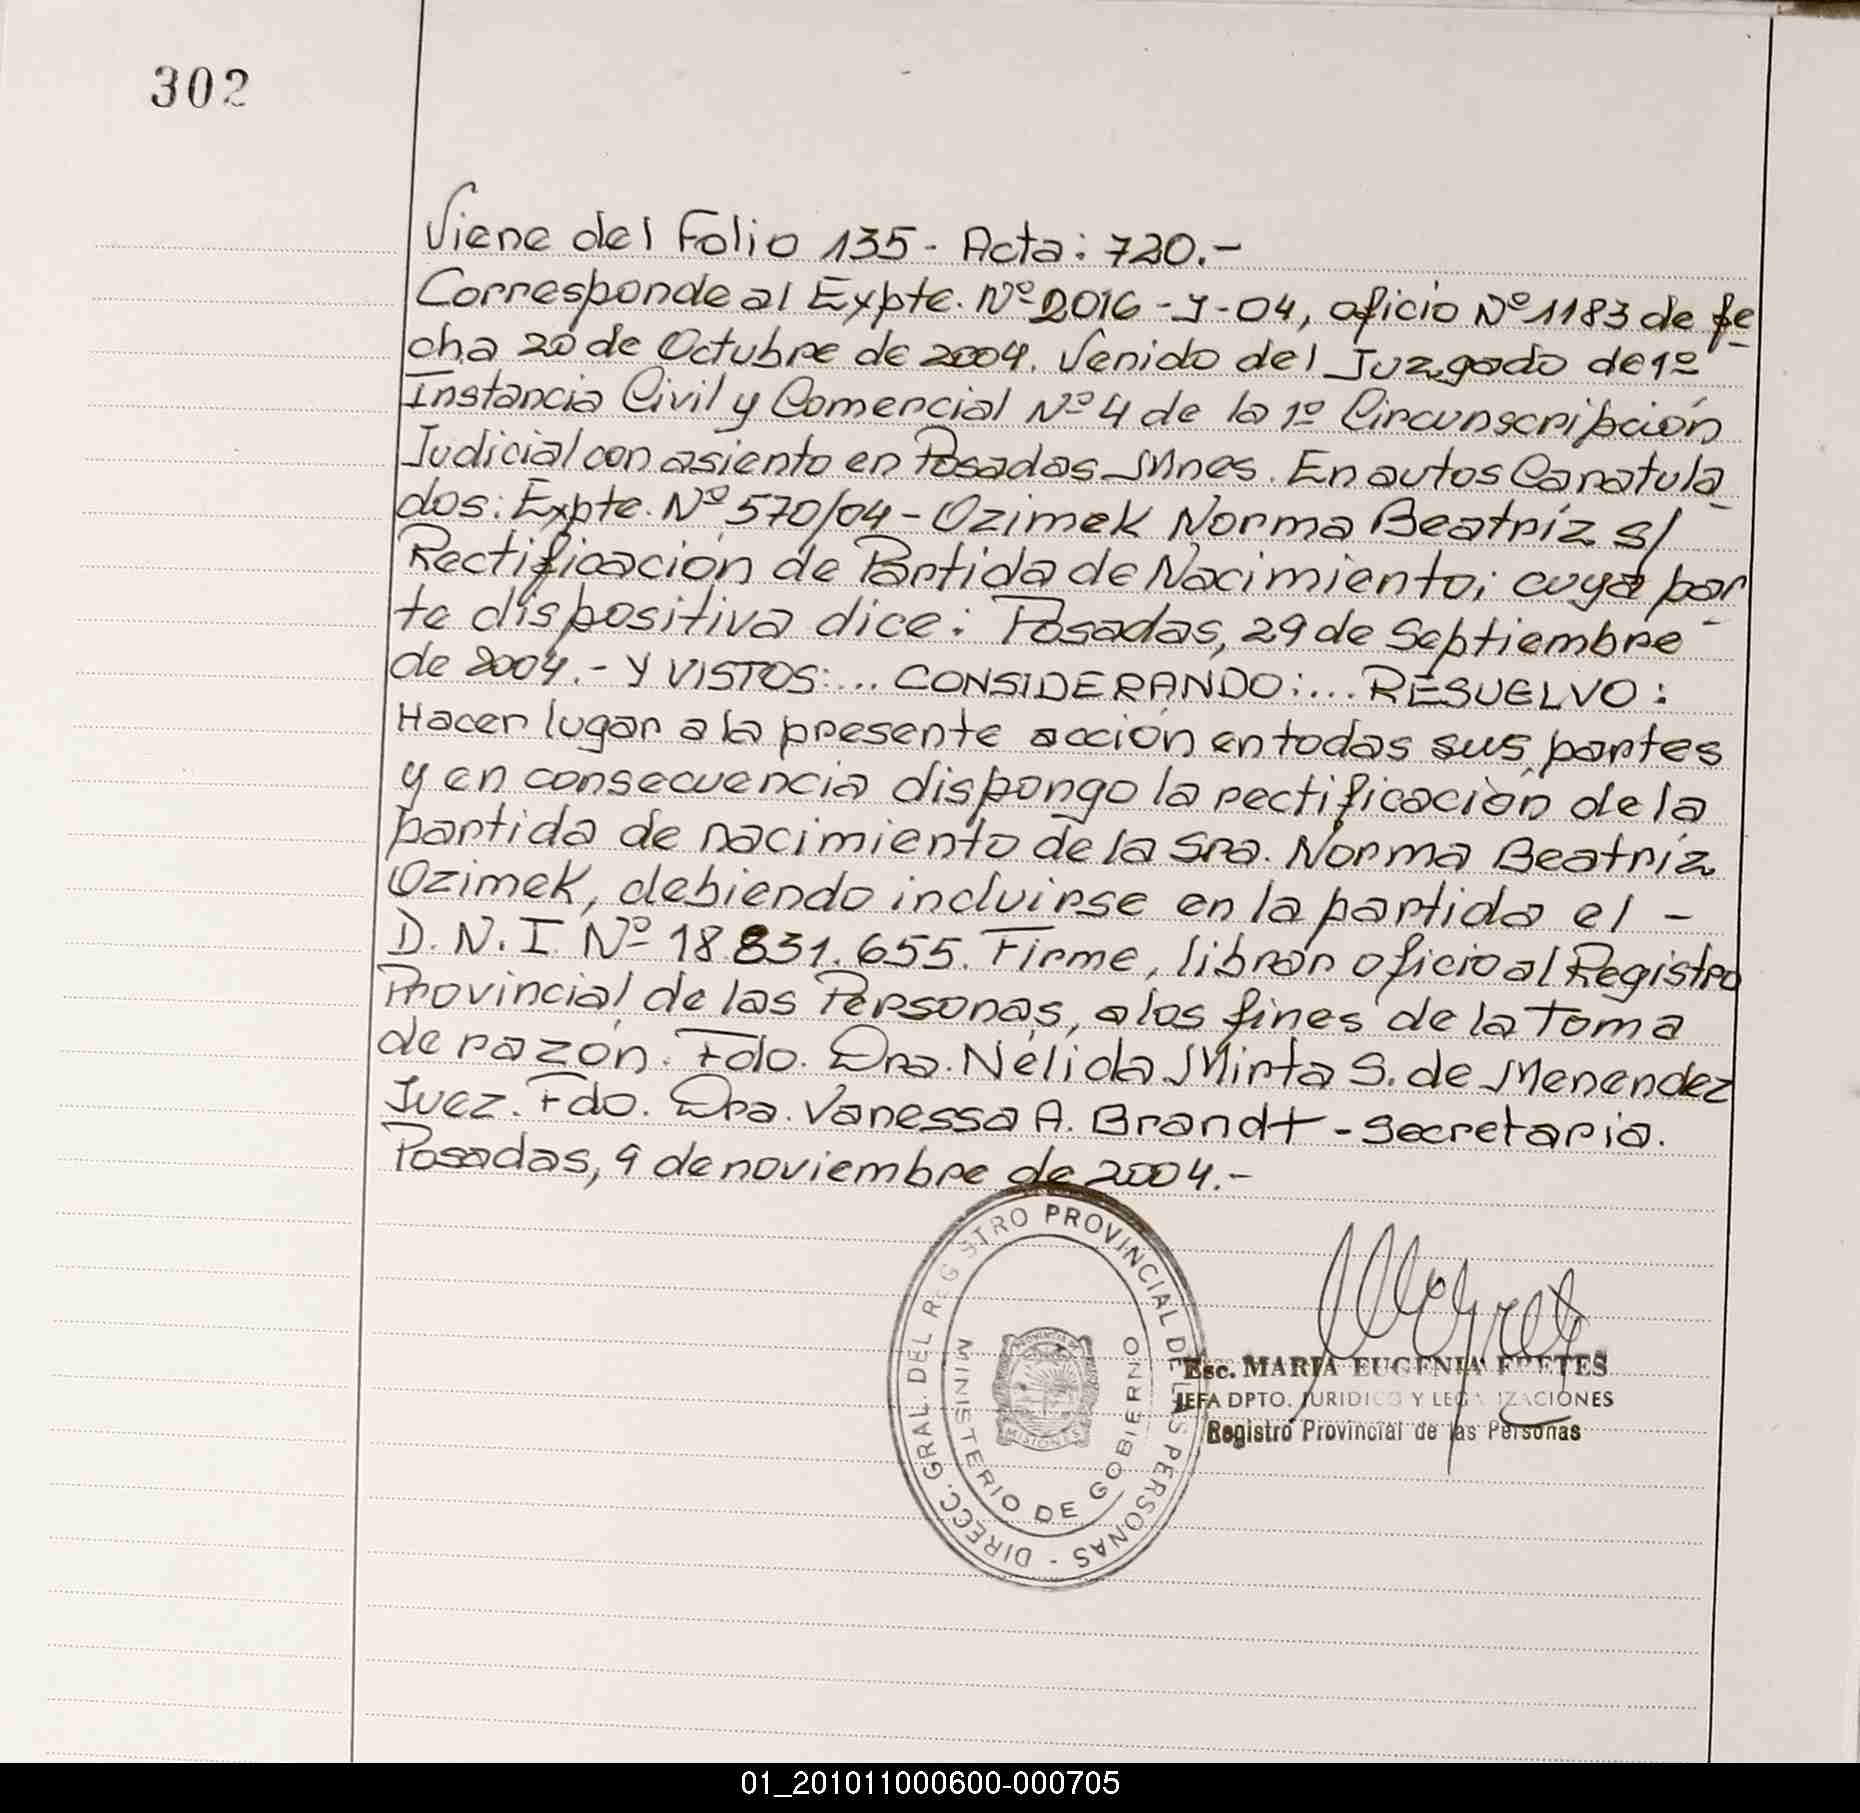 302
Viene del Folio 135 - Acta: 720.-
Corresponde al Expte. Nº 2016 - J - 04, oficio Nº 1183 de fe
cha 20 de Octubre de 2004. Venido del Juzgado de 1º
Instancia Civil y Comercial Nº 4 de la 1º Circunscripción
Judicial con asiento en Posadas Mnes. En autos Caratula
dos: Expte. Nº 570/04 - Ozimek Norma Beatríz s/
Rectificación de Partida de Nacimiento; cuya par
te dispositiva dice: Posadas, 29 de Septiembre
de 2004.- Y VISTOS:... CONSIDERANDO:... RESUELVO:
Hacer lugar a la presente acción en todas sus partes
y en consecuencia dispongo la rectificación de la
partida de nacimiento de la Sra. Norma Beatríz
Ozimek, debiendo incluirse en la partida el -
D.N.I. Nº 18.831.655. Firme, librar oficio al Registro
Provincial de las Personas, a los fines de la toma
de razón. Fdo. Dra. Nélida Mirta S. de Menendez
Juez. Fdo. Dra. Vanessa A. Brandt - Secretaria.
Posadas, 9 de noviembre de 2004.-
DIRECC. GRAL. DEL REGISTRO PROVINCIAL DE LAS PERSONAS -
MINISTERIO DE GOBIERNO
PROVINCIA DE
MISIONES
Esc. MARIA EUGENIA FRETES
JEFA DPTO. JURIDICO Y LEGALIZACIONES
Registro Provincial de las Personas
01_201011000600-000705